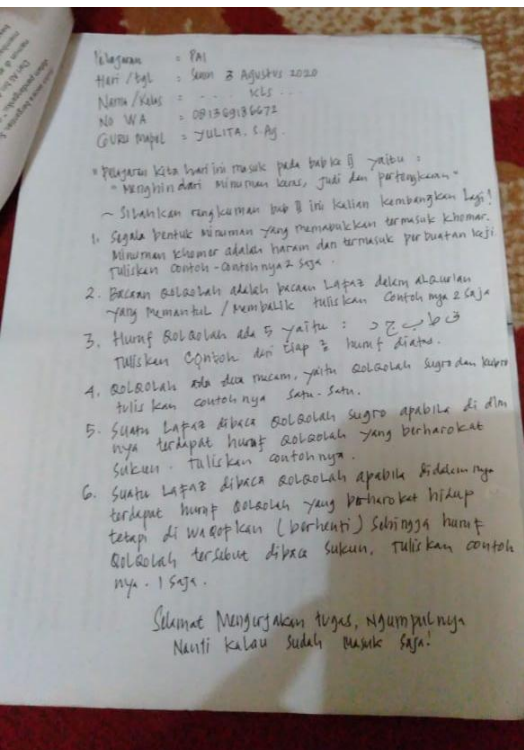 Pelajaran : PAI
Hari / tgl : Senin 3 Agustus 2020
Nama / Kelas : - . . . Kls . . .
No WA : 081369136672
GURU Mapel : YULITA. S. Ag.
"Pelajaran kita hari ini masuk pada bab ke II yaitu :
" Menghindari Minuman keras, Judi dan pertengkaran "
~ Silahkan rangkuman bab II ini kalian kembangkan lagi !
1. Segala bentuk Minuman yang memabukkan termasuk Khomar.
Minuman Khomer adalah haram dan termasuk perbuatan keji
Tuliskan Contoh-Contohnya 2 saja.
2. Bacaan QolQolah adalah bacaan Lafaz dalam alqur'an
yang Memantul / Membalik tuliskan Contohnya 2 saja
3. Huruf QolQolah ada 5 yaitu : ق ط ب ج د
Tuliskan Contoh dari tiap 2 huruf diatas.
4. QolQolah ada dua macam, yaitu QolQolah Sugro dan kubro
tulis kan contoh nya satu-satu.
5. Suatu Lafaz dibaca QolQolah sugro apabila di dlm
nya terdapat huruf QolQolah yang berharokat
sukun. Tuliskan contohnya.
6. Suatu Lafaz dibaca QolQolah apabila didalam nya
terdapat huruf Qolqolah yang berharokat hidup
tetapi di waqopkan (berhenti) sehingga huruf
QolQolah tersebut dibaca sukun, Tuliskan contoh
nya. 1 saja.
Selamat Mengerjakan tugas, Ngumpulnya
Nanti kalau sudah Masuk saja !